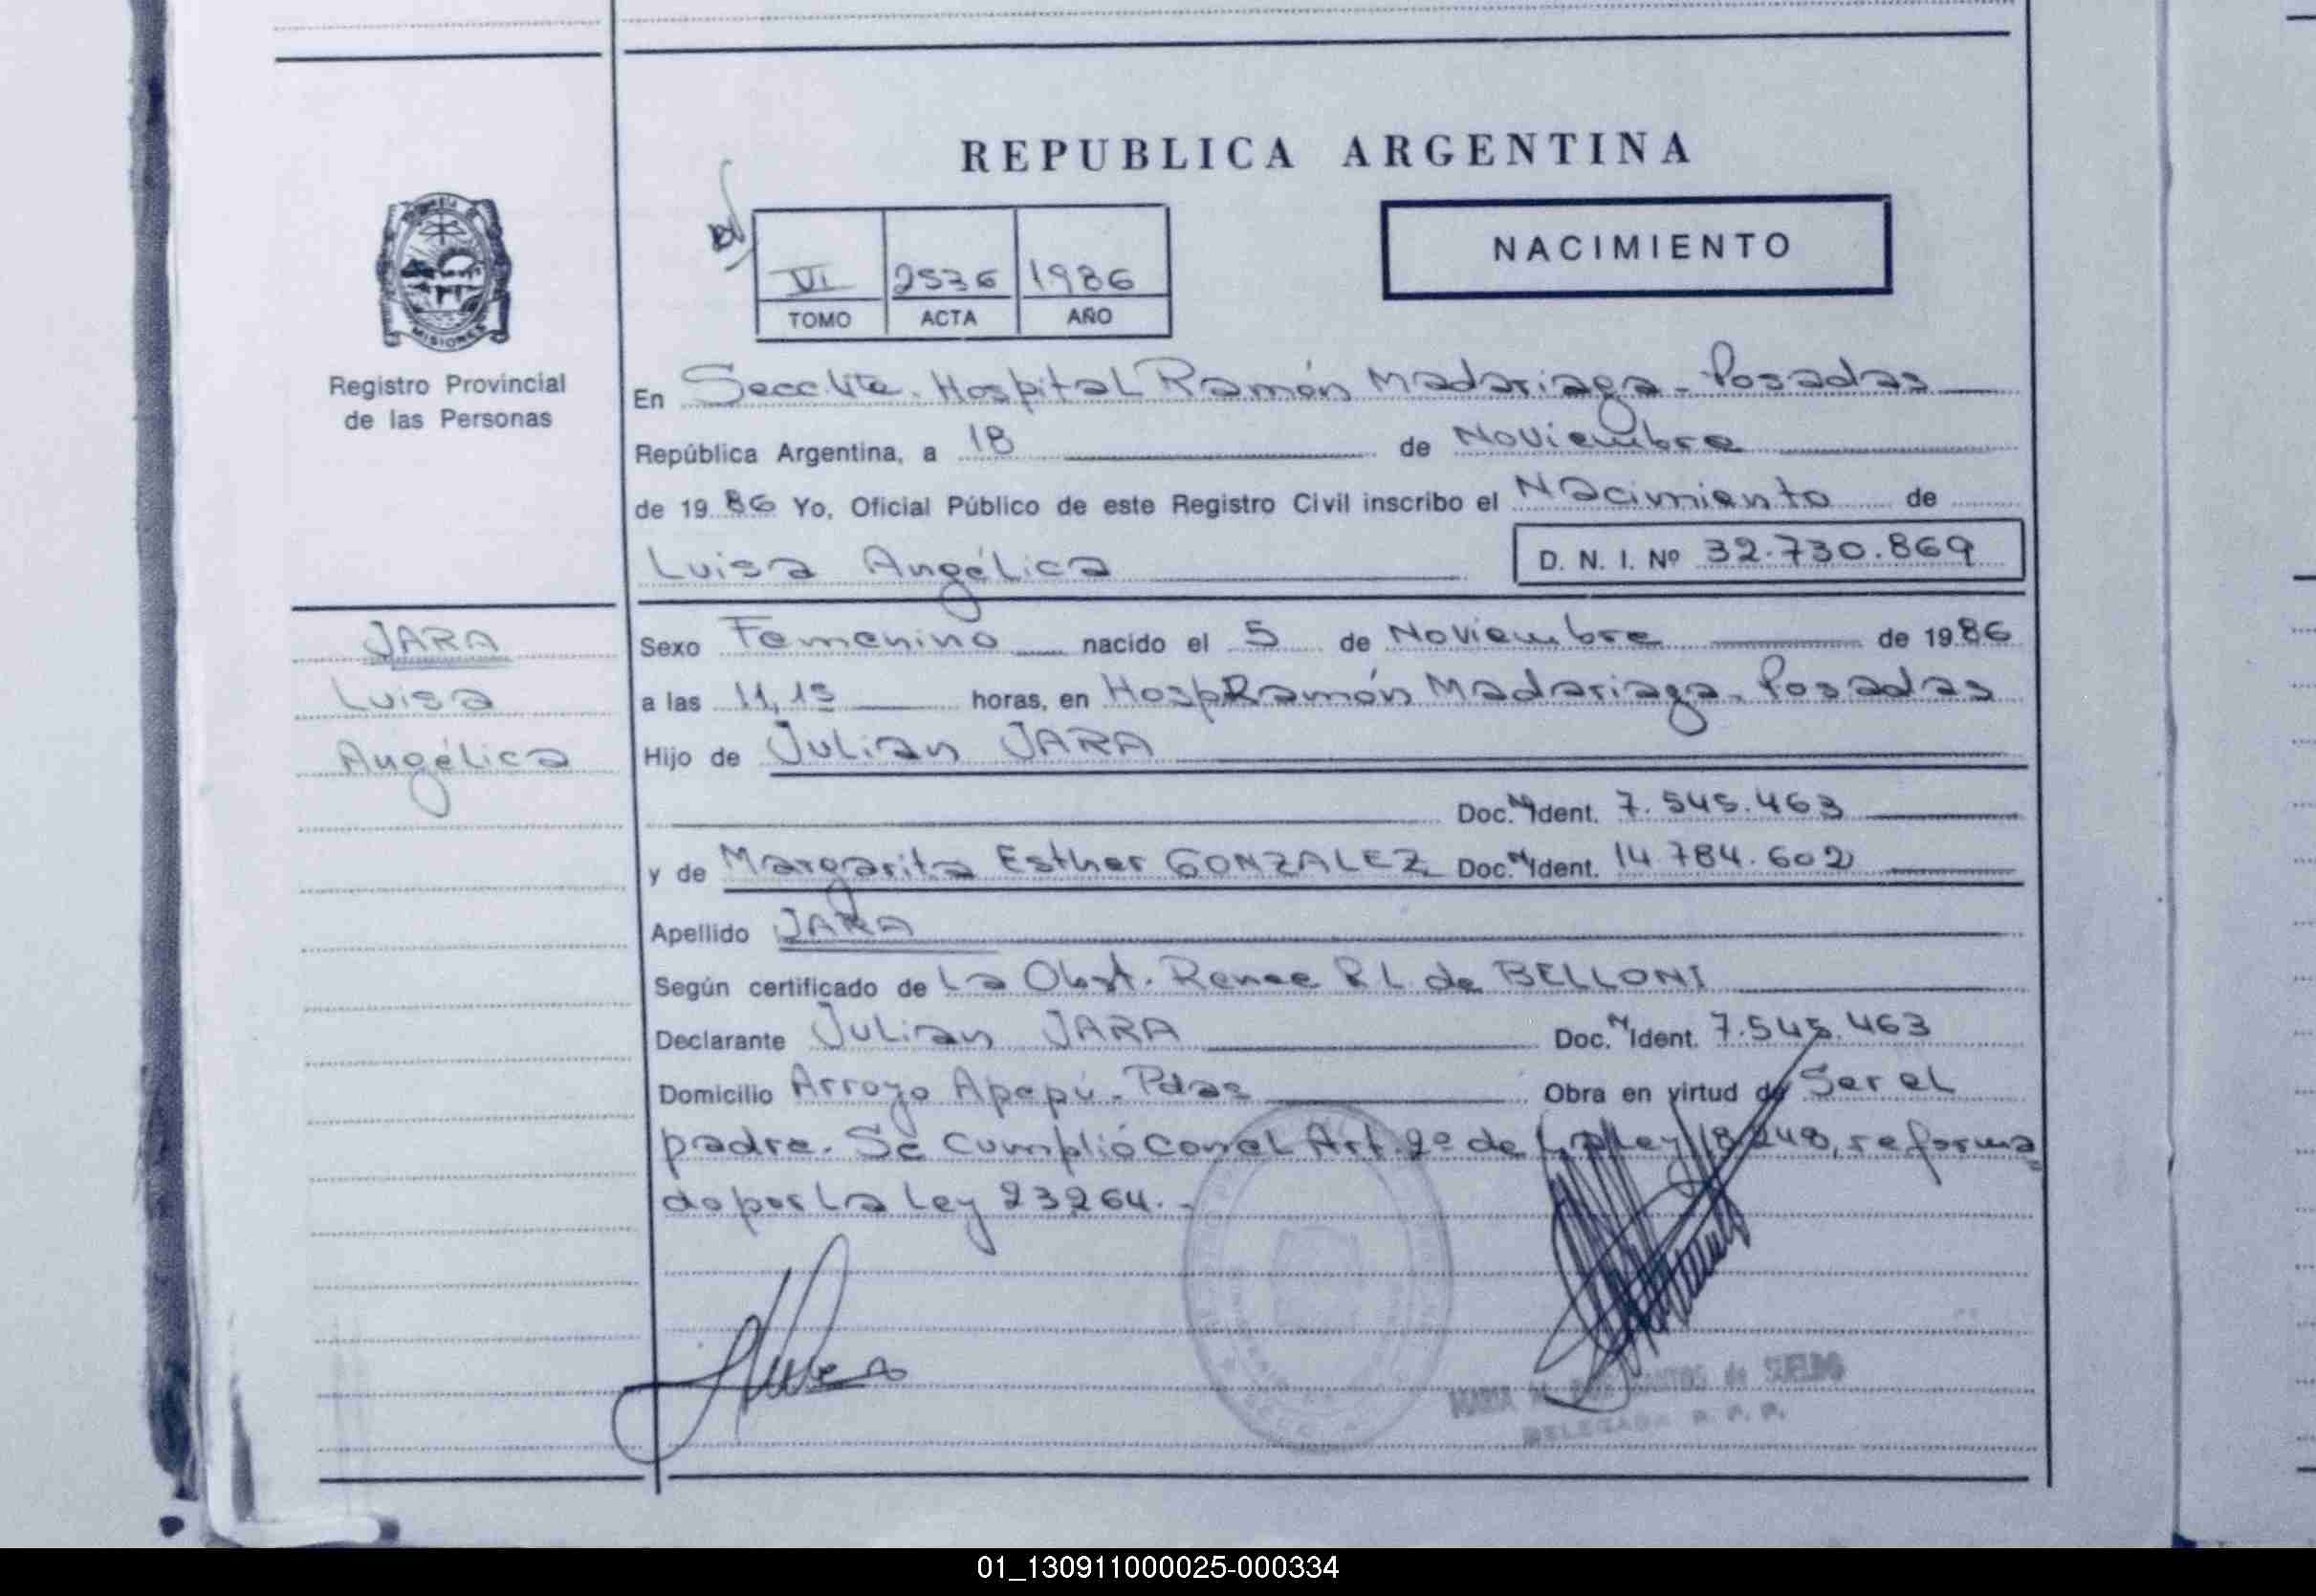 REPUBLICA ARGENTINA
NACIMIENTO
VI 2536 1986
TOMO ACTA AÑO
MISIONES
Registro Provincial
de las Personas
En Secc Hospital Ramón Madariaga - Posadas
República Argentina, a 18 de Noviembre
de 1986 Yo, Oficial Público de este Registro Civil inscribo el Nacimiento de
Luisa Angélica D. N. I. Nº 32.730.869
JARA
Luisa
Angélica
Sexo Femenino nacido el 5 de Noviembre de 1986
a las 11,15 horas, en Hosp Ramón Madariaga - Posadas
Hijo de Julian JARA
Doc. Nº Ident. 7.545.463
y de Margarita Esther GONZALEZ Doc. Nº Ident. 14.784.602
Apellido JARA
Según certificado de La Obst. Renee R L. de BELLONI
Declarante Julian JARA Doc. Nº Ident. 7.545.463
Domicilio Arroyo Apepú - Pdas Obra en virtud de Ser el
padre. Se cumplió con el Art. 2º de La Ley 18.248, reforma
do por La Ley 23264.-
MARIA M. SANTOS de SUELDO
DELEGADA R. P. P.
01_130911000025-000334